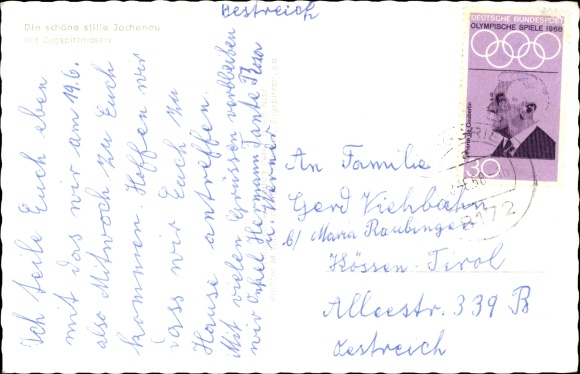 Die schöne stille Jachenau
mit Zugspitzmassiv
Ich teile Euch eben
mit das wir am 19.6.
also Mittwoch zu Euch
kommen. Hoffen wir
dass wir Euch zu
Hause antreffen.
Mit vielen Grüssen verbleiben
wir Onkel Hermann Tante
u Werner
Oestreich
DEUTSCHE BUNDESPOST
OLYMPISCHE SPIELE 1968
30
8172
An Familie
Gerd Viehbahn
b/ Maria Raubinger
Kössen-Tirol
Alleestr. 339 B
Oestreich